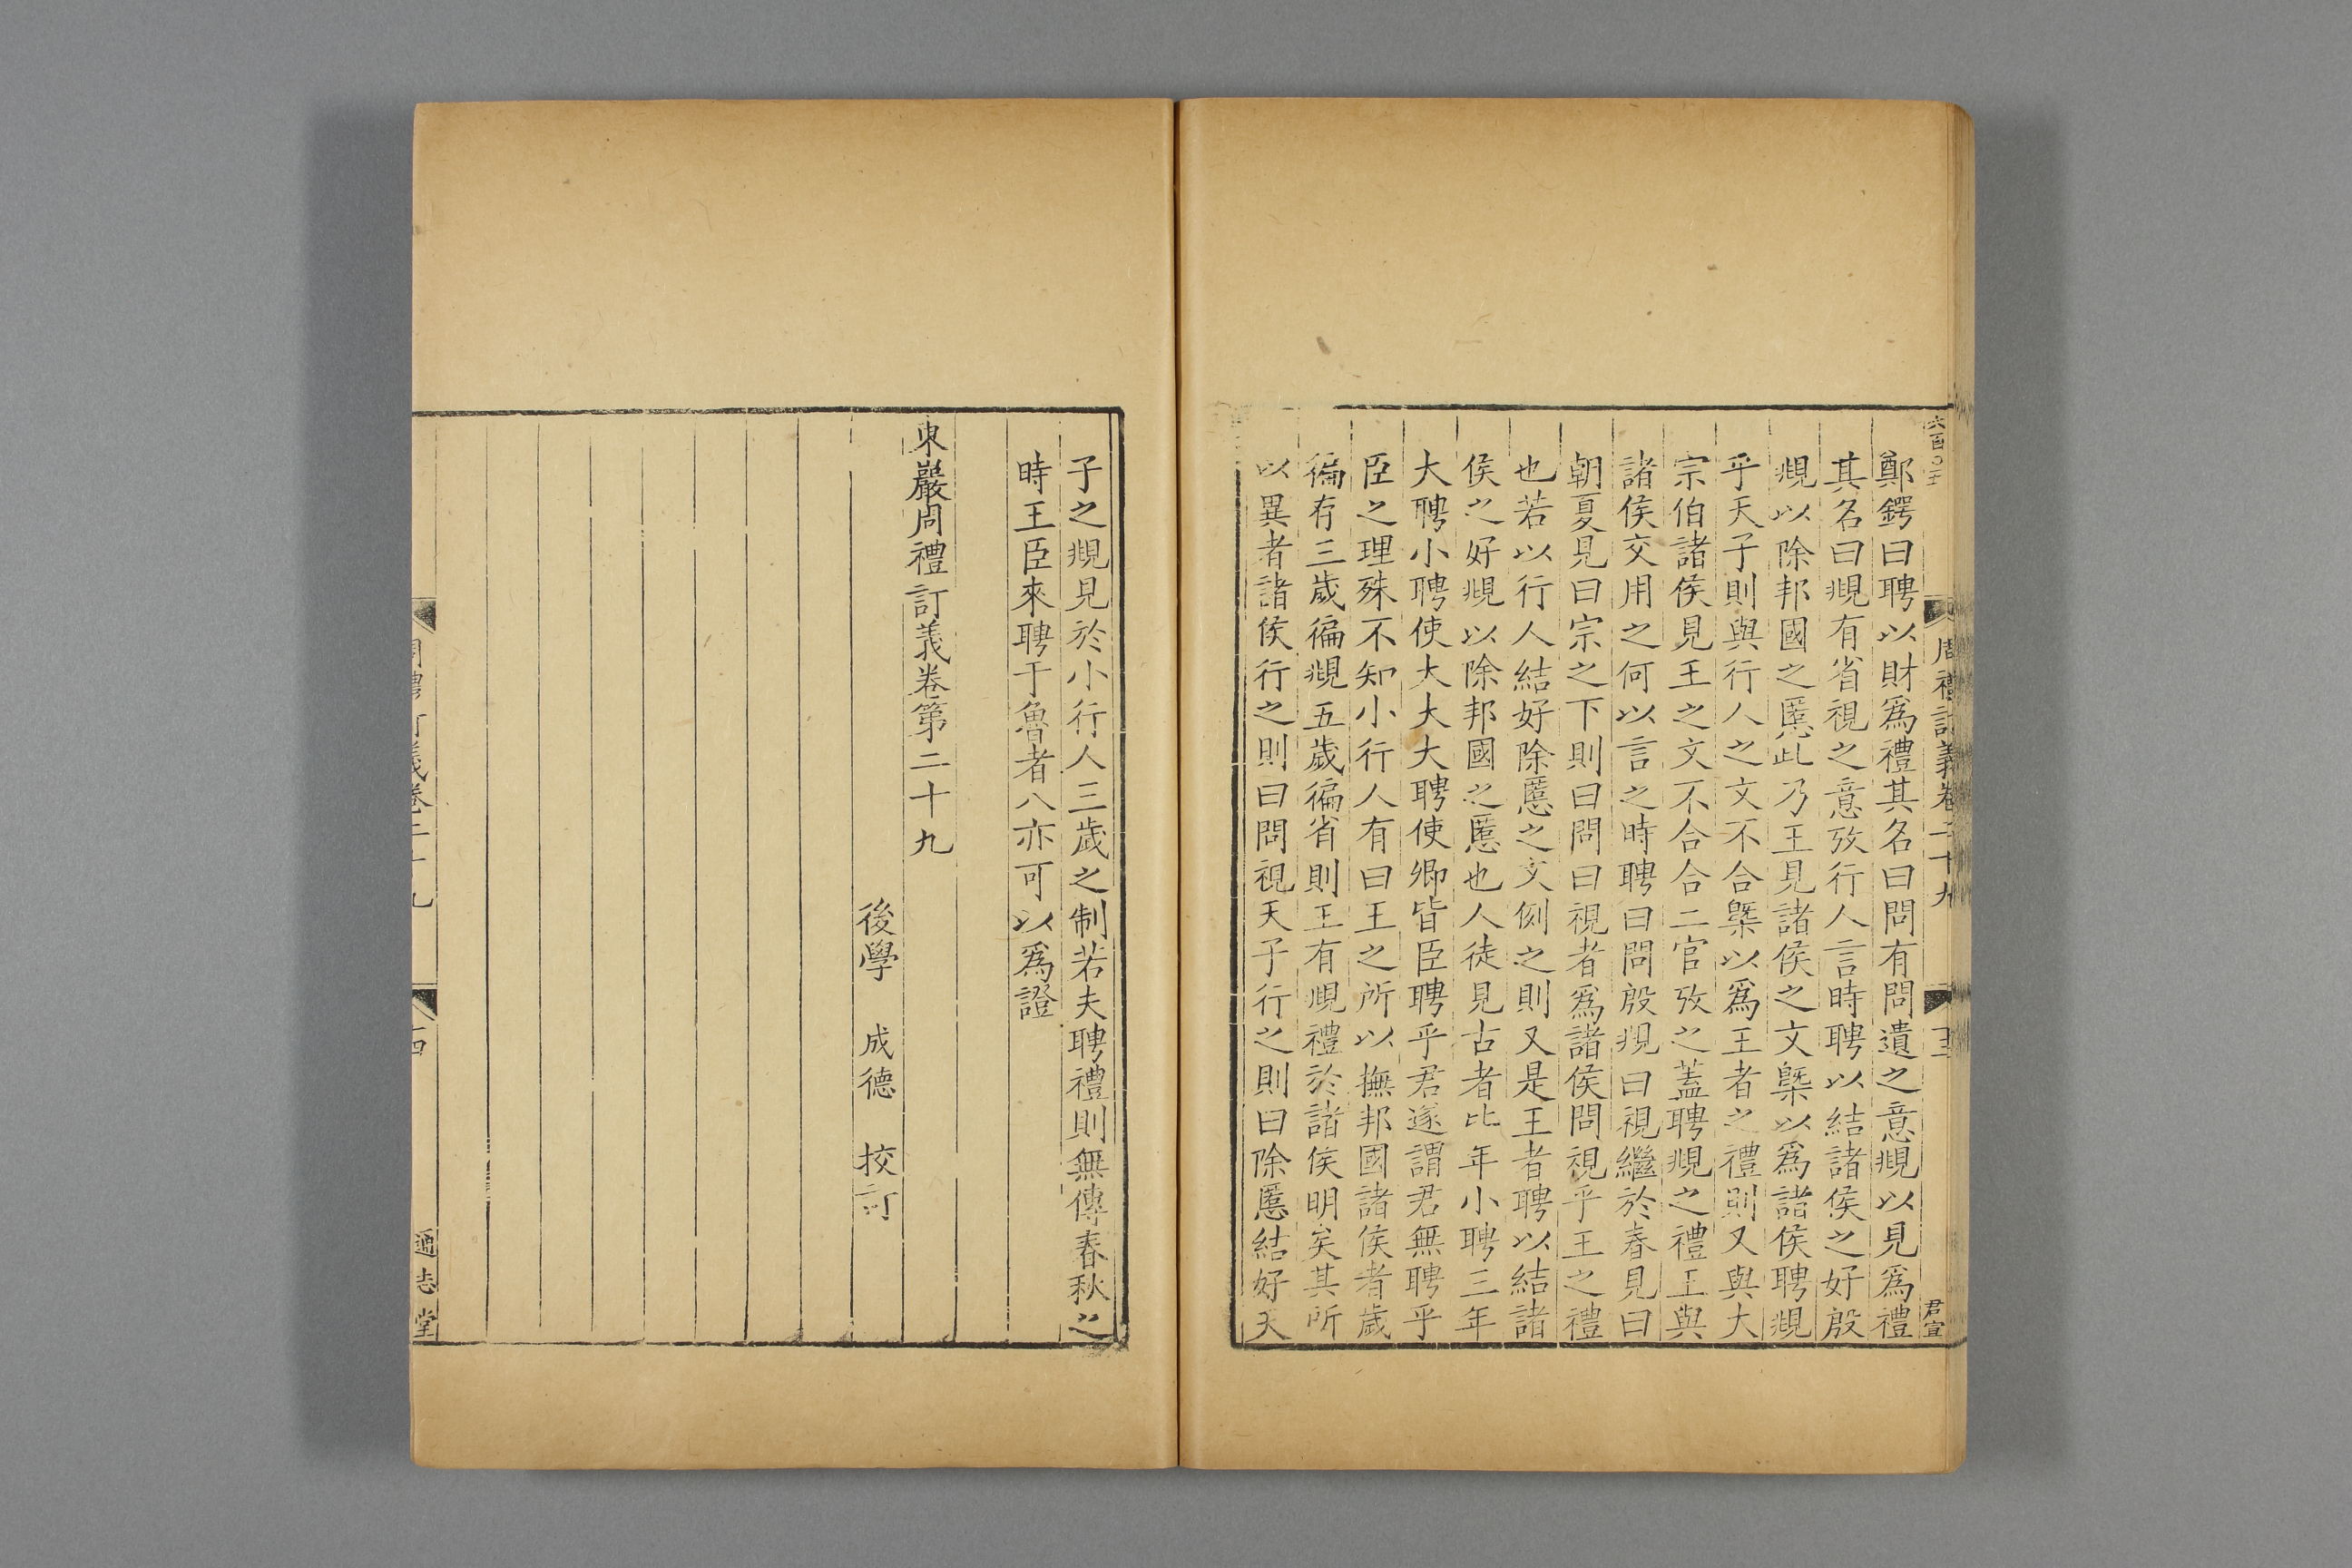 周禮訂義卷二十九
君宣
鄭鍔曰聘以財爲禮其名曰問有問遺之意覜以見爲禮
其名曰覜有省視之意攷行人言時聘以結諸侯之好殷
覜以除邦國之慝此乃王見諸侯之文槩以爲諸侯聘覜
乎天子則與行人之文不合槩以爲王者之禮則又與大
宗伯諸侯見王之文不合合二官攷之蓋聘覜之禮王與
諸侯交用之何以言之時聘曰問殷覜曰視繼於春見曰
朝夏見曰宗之下則曰問曰視者爲諸侯問視乎王之禮
也若以行人結好除慝之文例之則又是王者聘以結諸
侯之好覜以除邦國之慝也人徒見古者比年小聘三年
大聘小聘使大夫大聘使卿皆臣聘乎君遂謂君無聘乎
臣之理殊不知小行人有曰王之所以撫邦國諸侯者歲
徧存三歲徧覜五歲徧省則王有覜禮於諸侯明矣其所
以異者諸侯行之則曰問視天子行之則曰除慝結好天
子之覜見於小行人三歲之制若夫聘禮則無傳春秋之
時王臣來聘于魯者八亦可以爲證
東巖周禮訂義卷第二十九
後學 成德 挍訂
通志堂